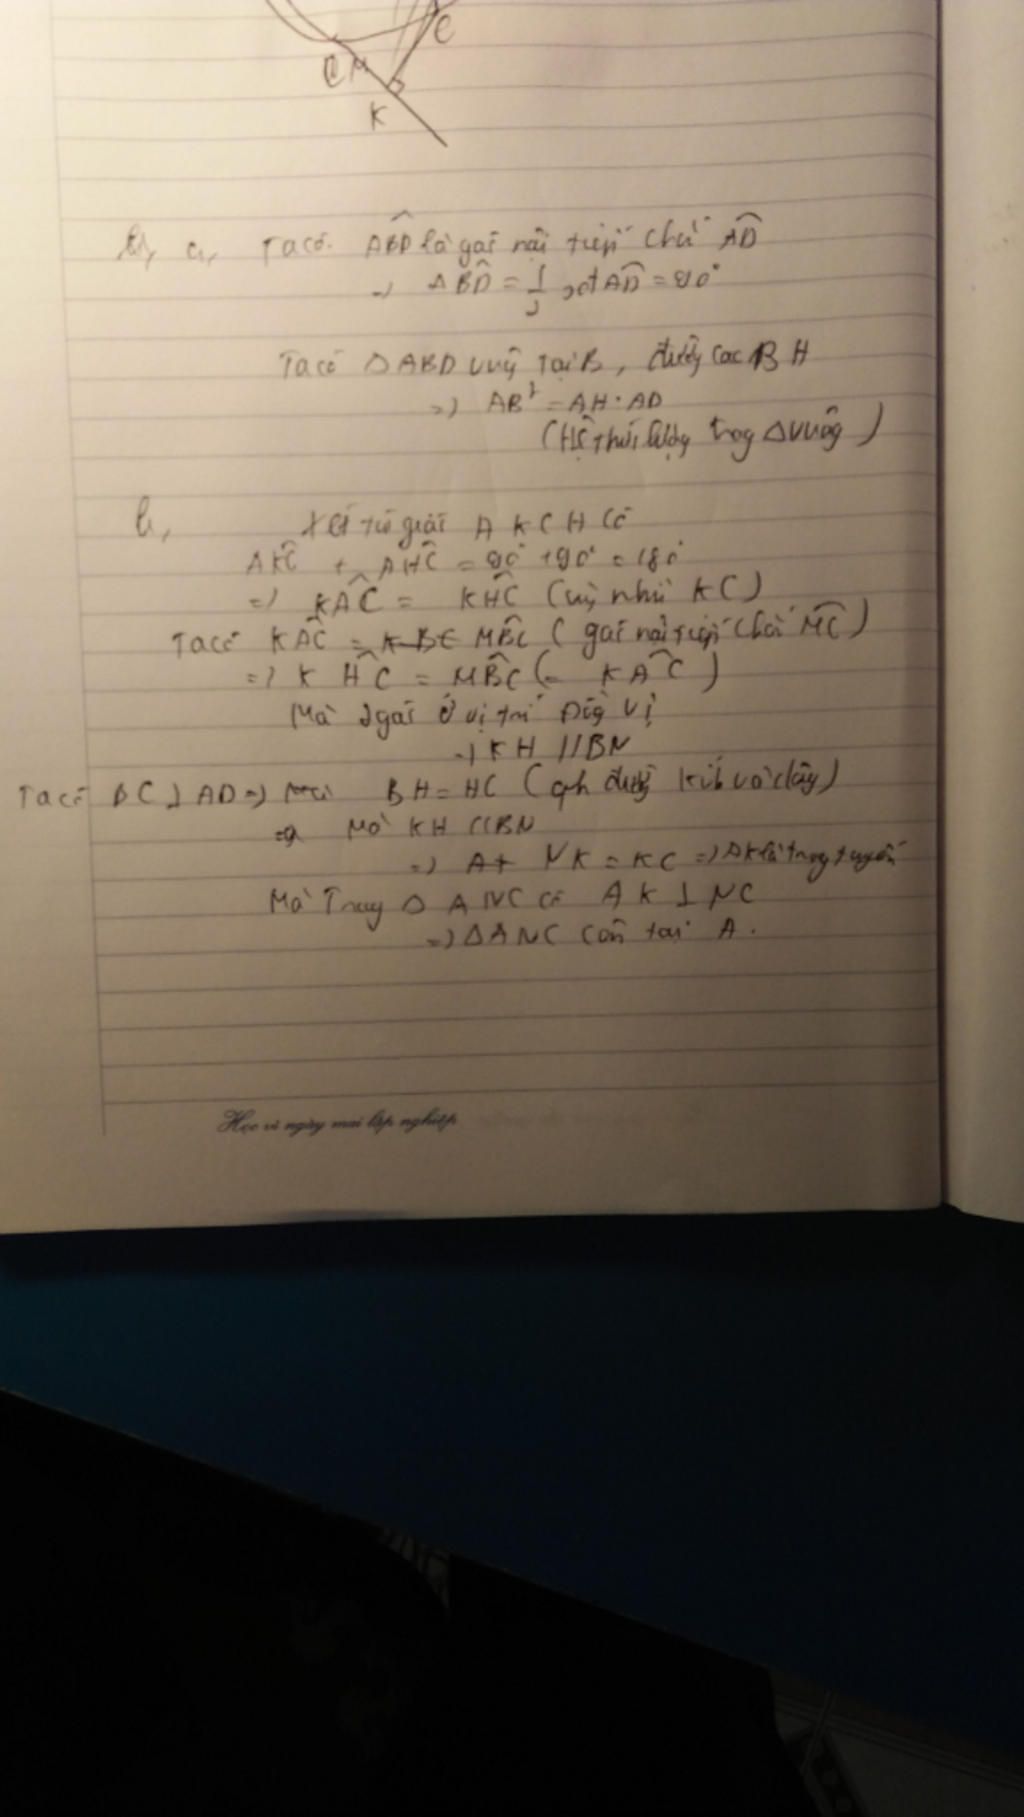 C
M
K
a, Ta có. ABD là góc nội tiếp chắn AD
=> ABD = 1/2 sđ AD = 90°
Ta có Δ ABD vuông tại B, đường cao BH
=> AB² = AH . AD
(Hệ thức lượng trong Δ vuông)
b, Xét tứ giác A K C H có
AKC + AHC = 90° + 90° = 180°
=> KAC = KHC (cùng nhìn KC)
Ta có KAC = MBC (góc nội tiếp chắn MC)
=> K HC = MBC (= KAC)
Mà 2 góc ở vị trí Đồng vị
=> KH // BN
Ta có BC ⊥ AD => BH = HC (qh đường kính và dây)
Mà KH // BN
=> NK = KC => AK là trung tuyến
Mà Trong Δ ANC có AK ⊥ NC
=> Δ ANC cân tại A.
Học vì ngày mai lập nghiệp